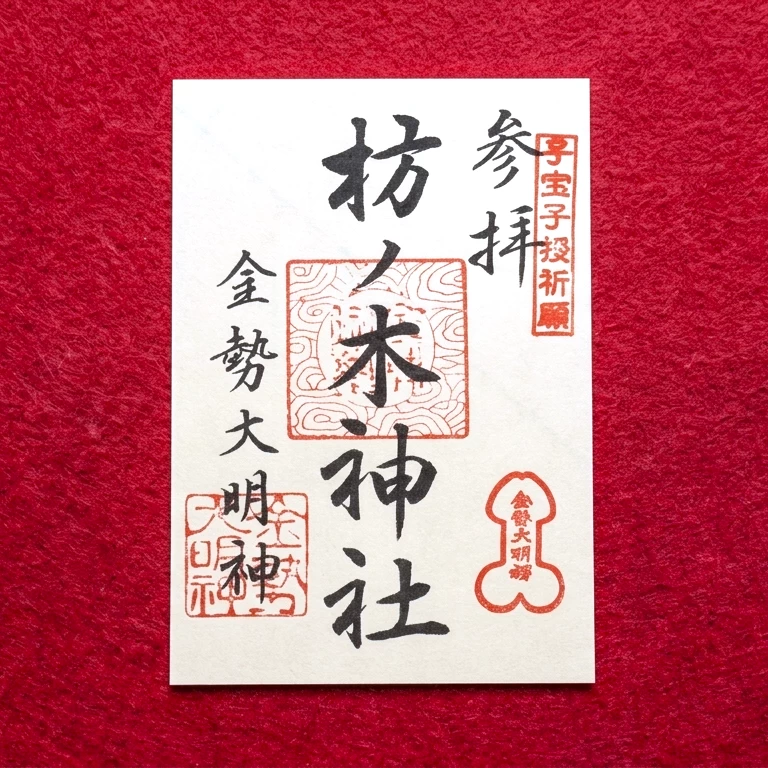 子宝子授祈願
参拝
枋ノ木神社
金勢大明神
金勢大明神
金勢大明神